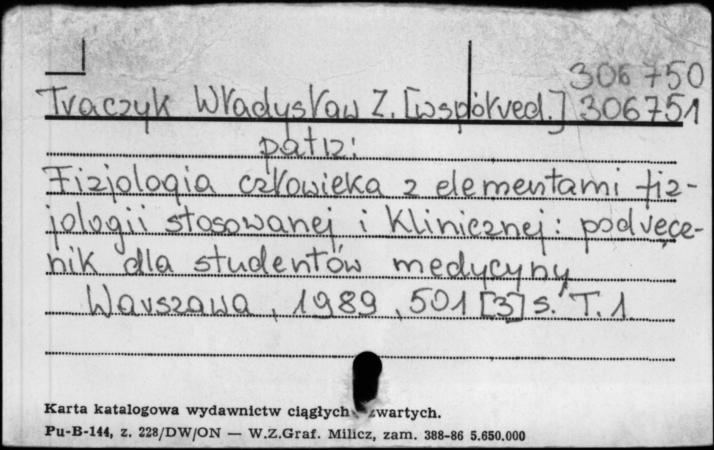 306 750
Traczyk Władysław Z. [współred.] 306751
patrz:
Fizjologia człowieka z elementami fiz-
jologii stosowanej i klinicznej: podręcz-
nik dla studentów medycyny
Warszawa, 1989, 501 [3] s. T. 1.
Karta katalogowa wydawnictw ciągłych zwartych.
Pu-B-144, z. 228/DW/ON — W.Z.Graf. Milicz, zam. 388-86 5.650.000